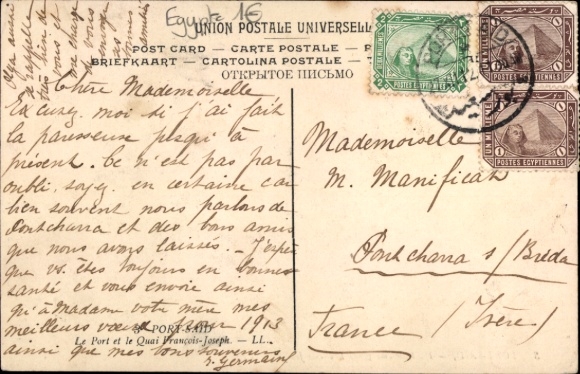 Egypte 1€
UNION POSTALE UNIVERSELLE
POST CARD — CARTE POSTALE —
BRIEFKAART — CARTOLINA POSTALE —
ОТКРЫТОЕ ПИСЬМО
Chère Mademoiselle
Excusez moi si j'ai fait
la paresseuse jusqu'à
présent. Ce n'est pas par
oubli, soyez en certaine car
bien souvent nous parlons de
Pontcharra et des bons amis
que nous avons laissés. — J'espère
que vs. êtes toujours en bonne
santé et vous envoie ainsi
qu'à Madame votre mère mes
meilleurs vœux pour 1913
ainsi que mes bons souvenirs
Germain
PORT-SAID
Le Port et le Quai François-Joseph. — LL.
me charge
de vous
Mademoiselle
M. Manificat
Pontcharra s/Bréda
(Isère)
France
POSTES EGYPTIENNES
UN MILLIEME
POSTES EGYPTIENNES